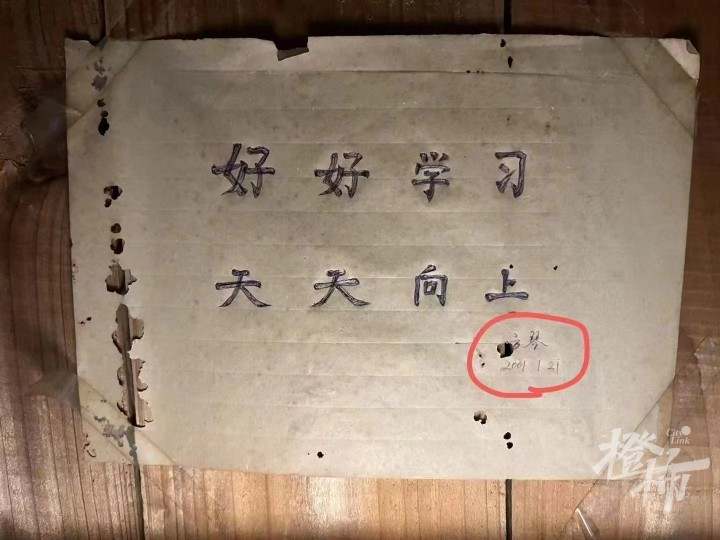 好好学习
天天向上
琴
2001 1 21
City Link
橙柿